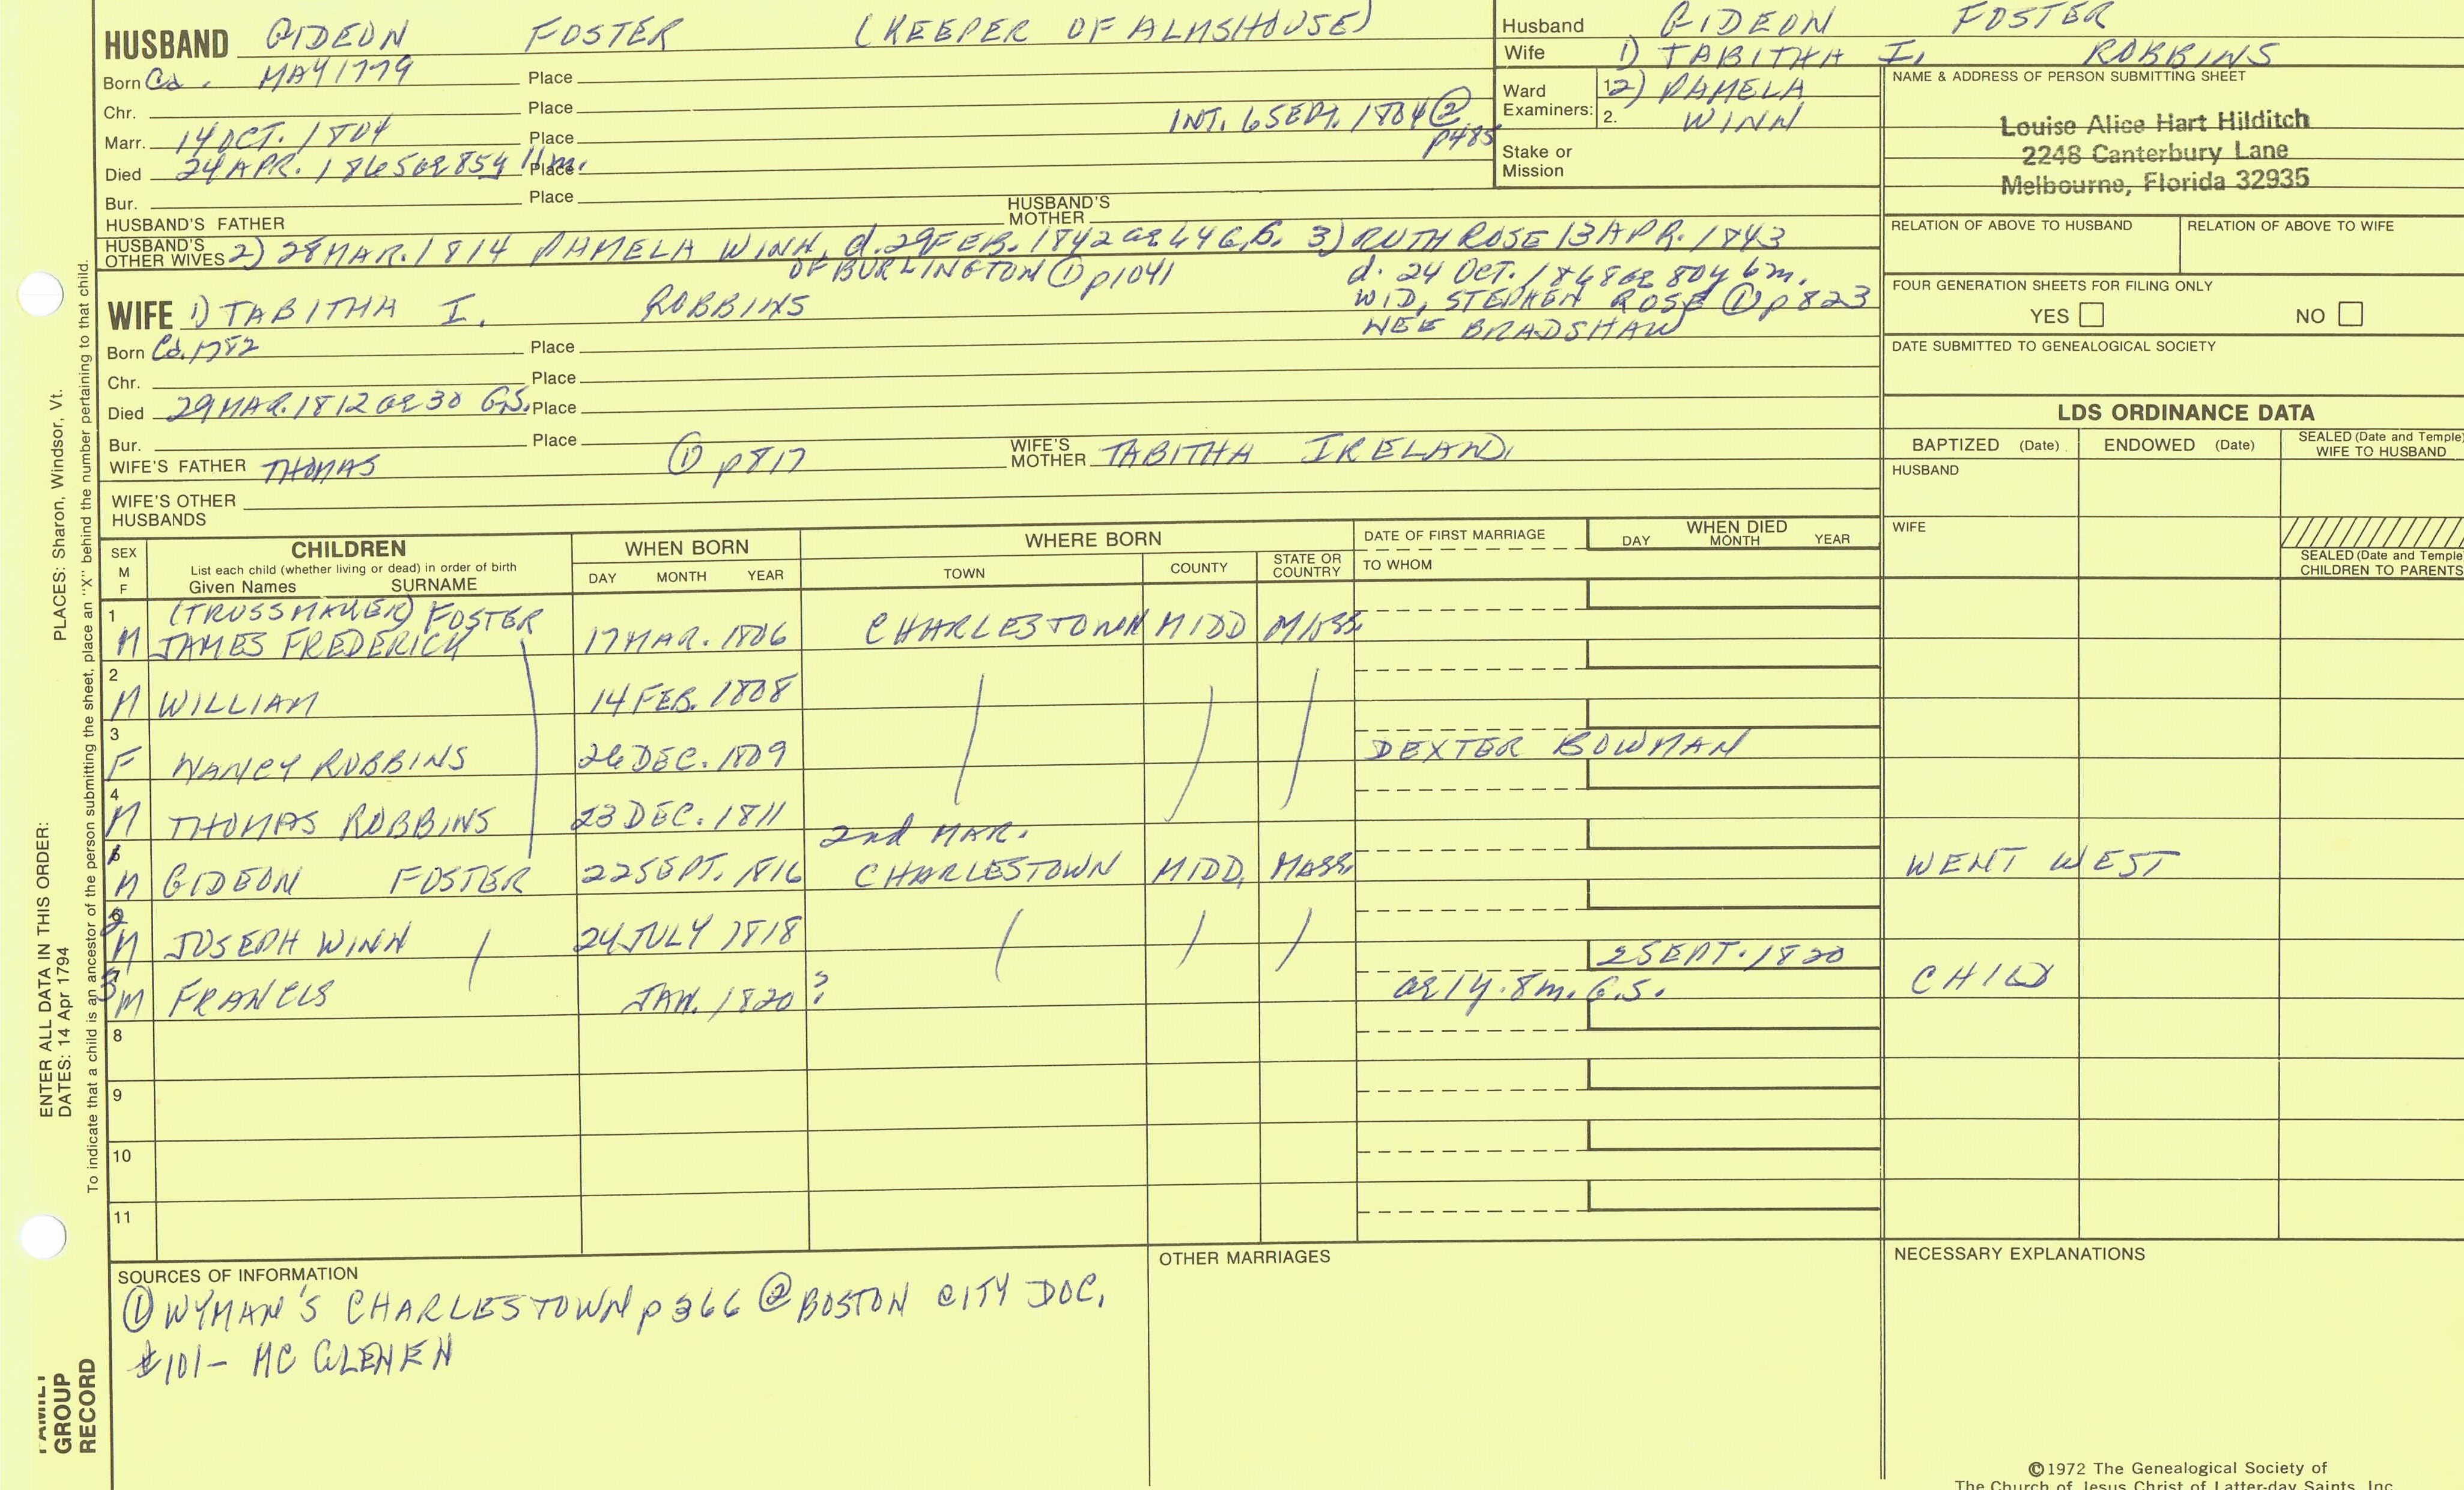 HUSBAND GIDEON FOSTER (KEEPER OF ALMSHOUSE)
Born Ca. MAY 1779 Place
Chr. Place
Marr. 14 OCT. 1804 Place INT. 6 SEPT. 1804 ② p485
Died 24 APR. 1865 ae 85y 11m. Place
Bur. Place
HUSBAND'S FATHER HUSBAND'S MOTHER
HUSBAND'S OTHER WIVES 2) 28 MAR. 1814 PAMELA WINN, d. 29 FEB. 1842 ae 64 G.S. 3) RUTH ROSE 13 APR. 1843
OF BURLINGTON ① p1041 d. 24 OCT. 1868 ae 80y 6m.
WID. STEPHEN ROSE ① p823
NEE BRADSHAW
WIFE 1) TABITHA I. ROBBINS
Born Ca. 1782 Place
Chr. Place
Died 29 MAR. 1812 ae 30 G.S. Place
Bur. Place
WIFE'S FATHER THOMAS ① p817 WIFE'S MOTHER TABITHA IRELAND
WIFE'S OTHER HUSBANDS
Husband GIDEON FOSTER
Wife 1) TABITHA I. ROBBINS
Ward Examiners: 1. 2) PAMELA
2. WINN
Stake or Mission
NAME & ADDRESS OF PERSON SUBMITTING SHEET
Louise Alice Hart Hilditch
2248 Canterbury Lane
Melbourne, Florida 32935
RELATION OF ABOVE TO HUSBAND RELATION OF ABOVE TO WIFE
FOUR GENERATION SHEETS FOR FILING ONLY
YES NO
DATE SUBMITTED TO GENEALOGICAL SOCIETY
LDS ORDINANCE DATA
BAPTIZED (Date) ENDOWED (Date) SEALED (Date and Temple) WIFE TO HUSBAND
HUSBAND
WIFE
SEALED (Date and Temple) CHILDREN TO PARENTS
SEX M F
CHILDREN
List each child (whether living or dead) in order of birth
Given Names SURNAME
WHEN BORN
DAY MONTH YEAR
WHERE BORN
TOWN COUNTY STATE OR COUNTRY
DATE OF FIRST MARRIAGE
TO WHOM
WHEN DIED
DAY MONTH YEAR
1 (TRUSSMAKER) FOSTER
M JAMES FREDERICK 17 MAR. 1806 CHARLESTOWN MIDD MASS
2
M WILLIAM 14 FEB. 1808
3
F NANCY ROBBINS 26 DEC. 1809 DEXTER BOWMAN
4
M THOMAS ROBBINS 23 DEC. 1811
2nd MAR.
M GIDEON FOSTER 22 SEPT. 1816 CHARLESTOWN MIDD. MASS. WENT WEST
2
M JOSEPH WINN 24 JULY 1818
2 SEPT. 1820
3
M FRANCIS JAN. 1820? ae 1y. 8m. G.S. CHILD
8
9
10
11
SOURCES OF INFORMATION
① WYMAN'S CHARLESTOWN p366 ② BOSTON CITY DOC.
#101 - MC GLENEN
OTHER MARRIAGES
NECESSARY EXPLANATIONS
©1972 The Genealogical Society of
The Church of Jesus Christ of Latter-day Saints, Inc.
PLACES: Sharon, Windsor, Vt.
ENTER ALL DATA IN THIS ORDER:
DATES: 14 Apr 1794
To indicate that a child is an ancestor of the person submitting the sheet, place an "X" behind the number pertaining to that child.
FAMILY
GROUP
RECORD